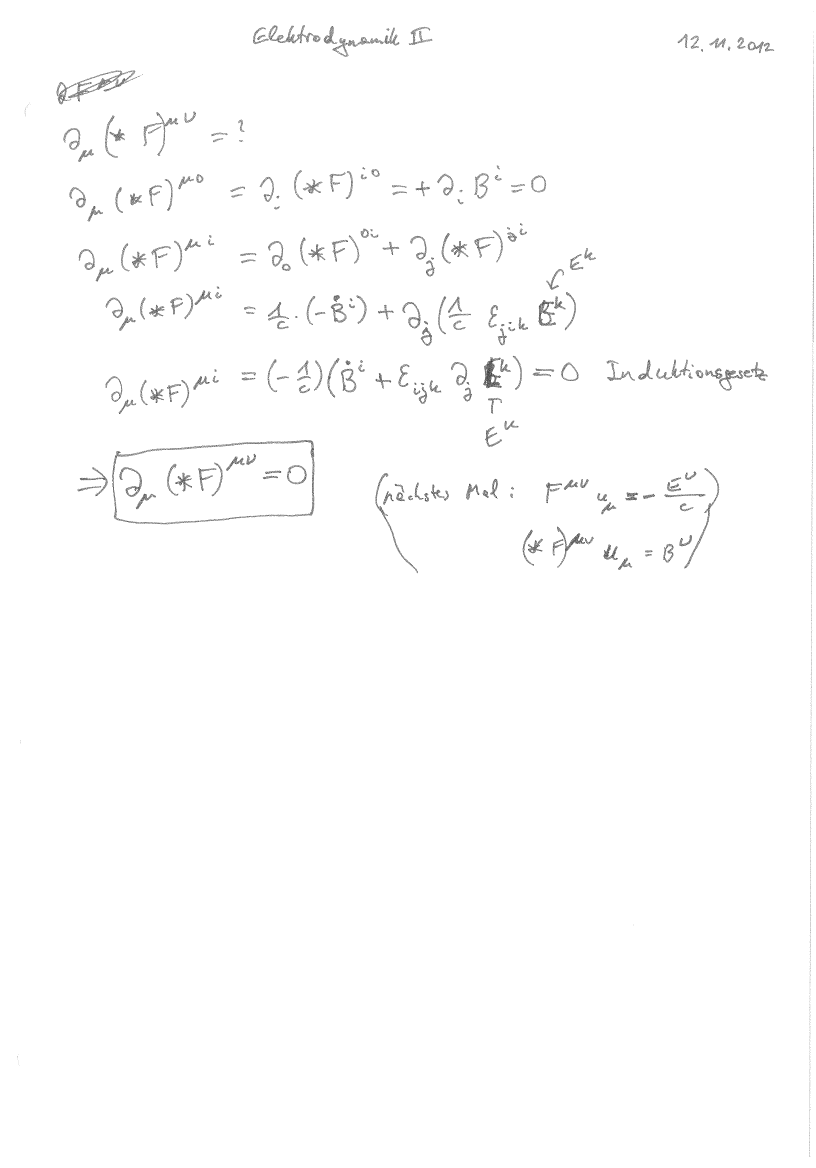 Elektrodynamik II
12.11.2012
∂_μ (* F)^{μν} = ?
∂_μ (*F)^{μ0} = ∂_i (*F)^{i0} = + ∂_i B^i = 0
∂_μ (*F)^{μi} = ∂_0 (*F)^{0i} + ∂_j (*F)^{ji}
E^k
∂_μ (*F)^{μi} = 1/c · (-Ḃ^i) + ∂_j (1/c ε_{jik} E^k)
∂_μ (*F)^{μi} = (-1/c) (Ḃ^i + ε_{ijk} ∂_j E^k) = 0 Induktionsgesetz
E^k
⇒ ∂_μ (*F)^{μν} = 0
(nächstes Mal: F^{μν} u_μ = - E^ν/c )
(*F)^{μν} u_μ = B^ν